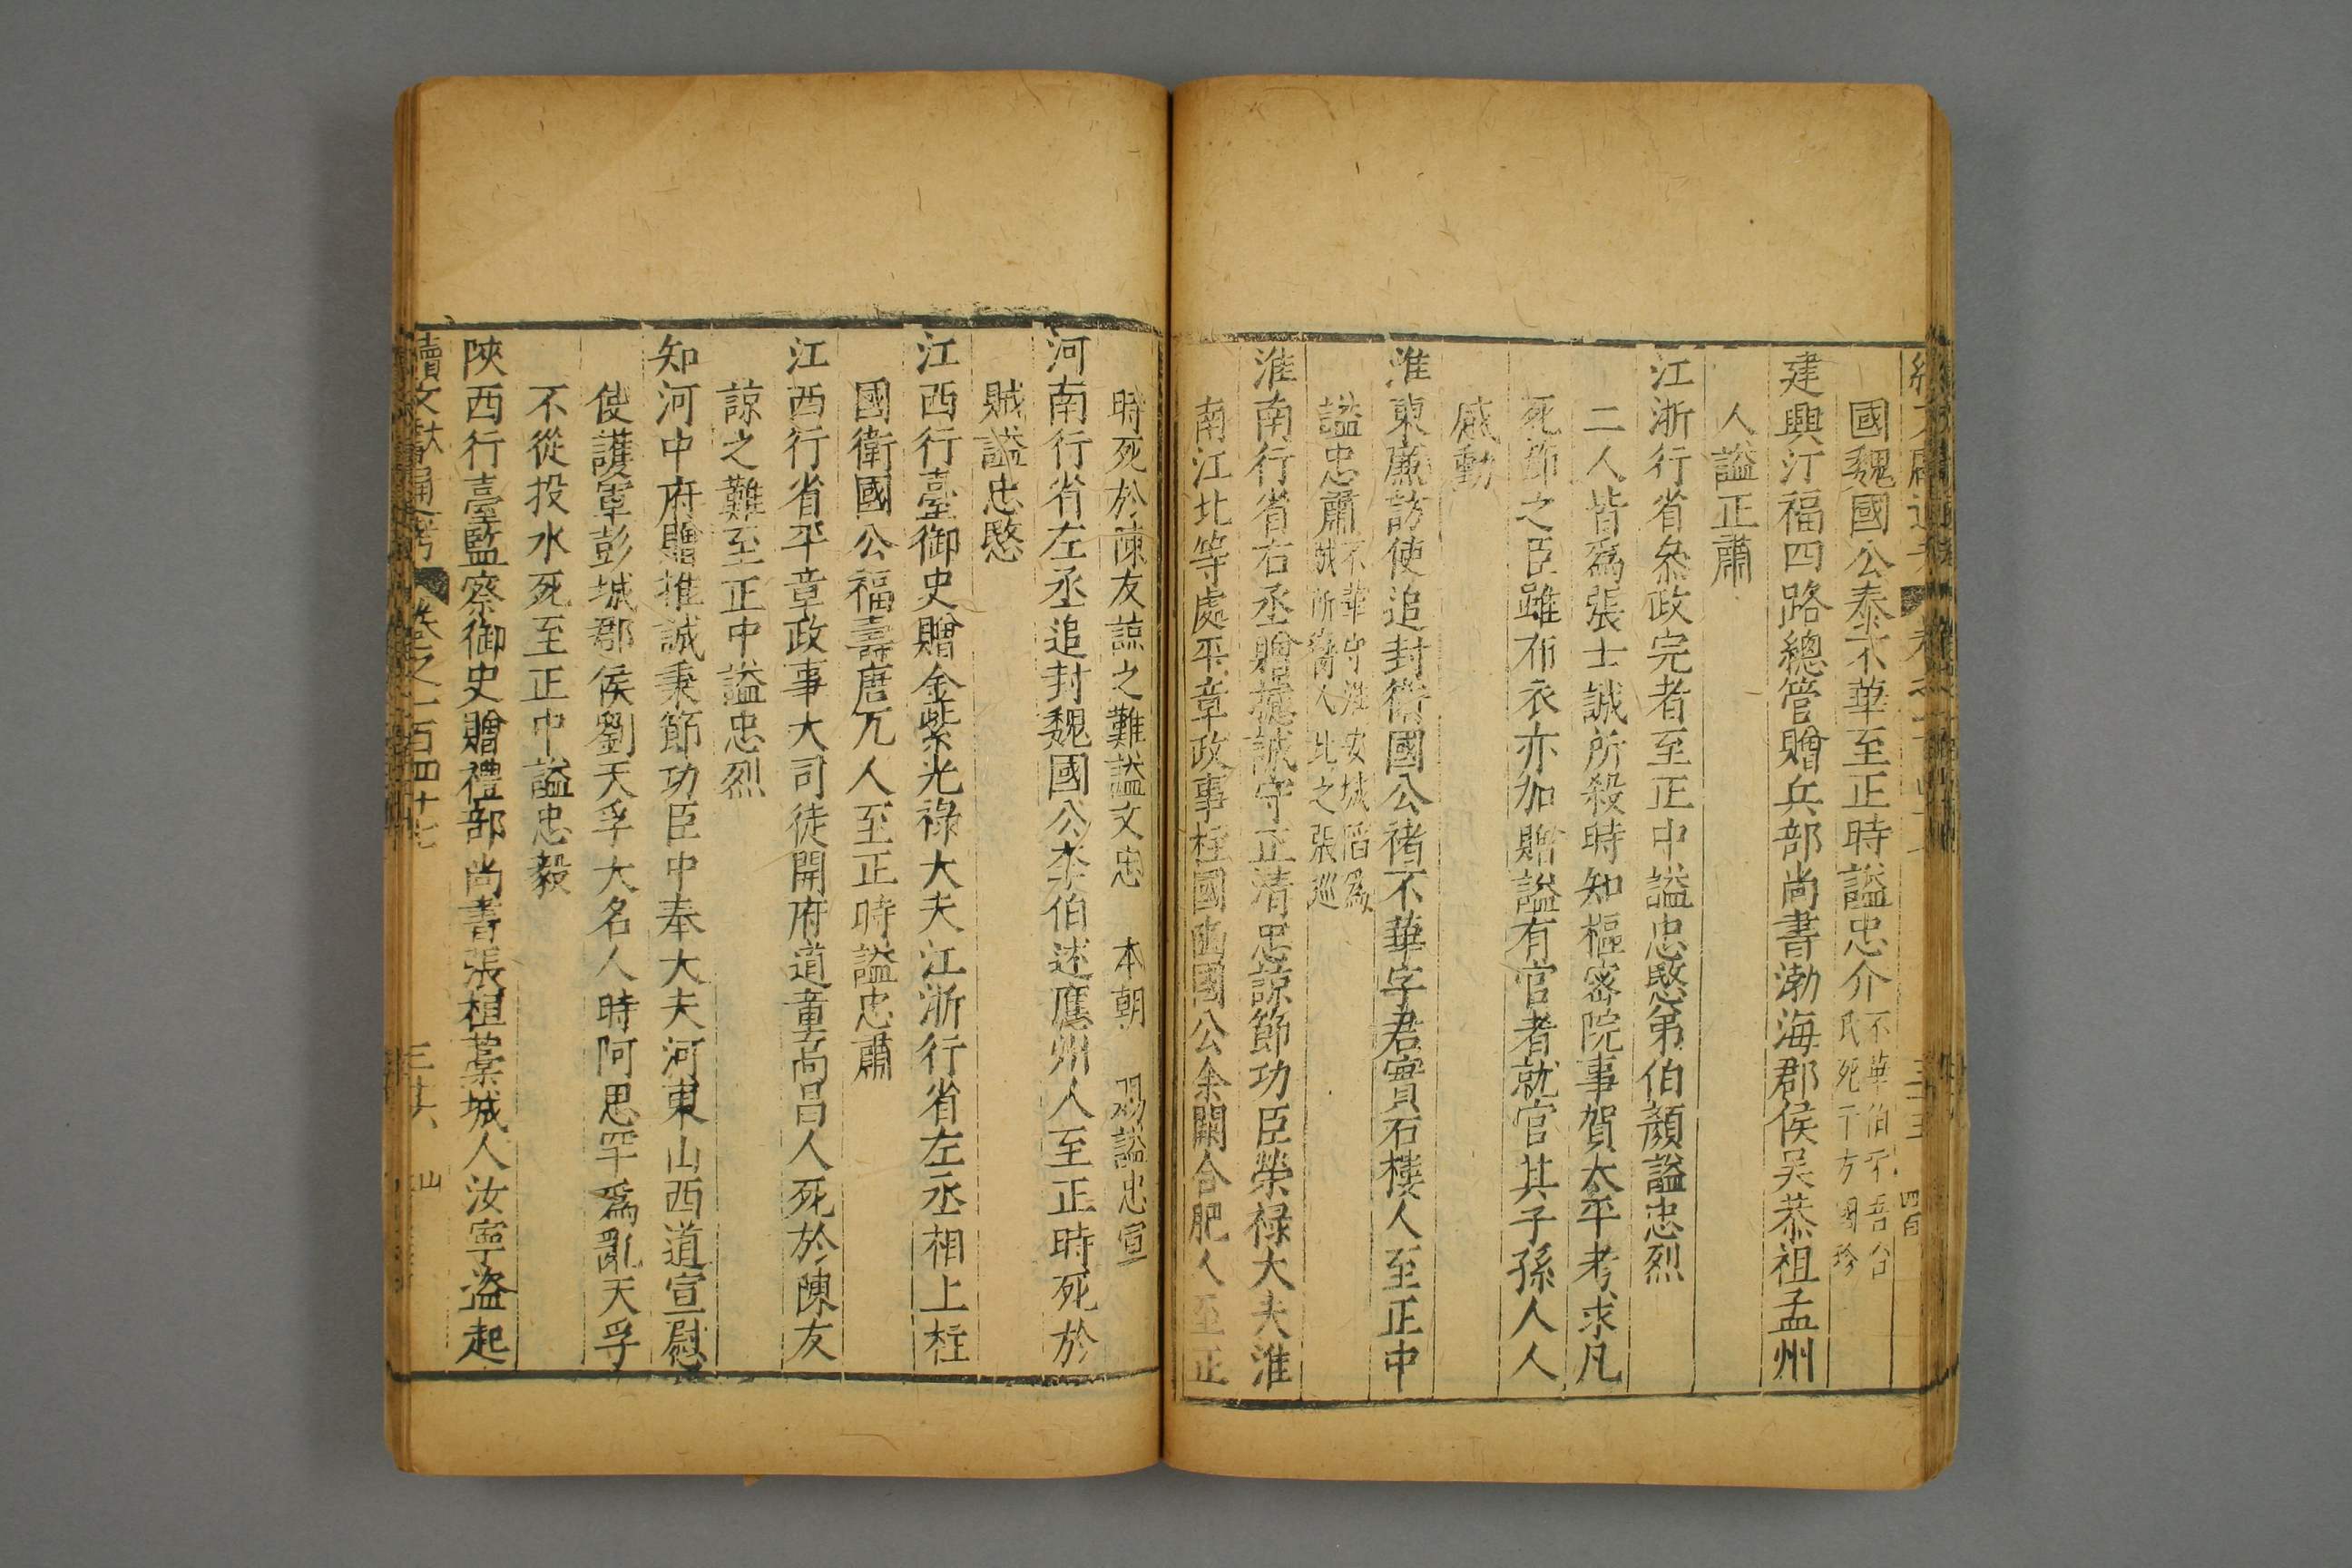 國魏國公泰不華至正時謚忠介不華伯牙吾台
氏死于方國珍
建興汀福四路總管贈兵部尚書渤海郡侯吴恭祖孟州
人謚正肅
江浙行省叅政完者至正中謚忠愍弟伯顏謚忠烈
二人皆爲張士誠所殺時知樞密院事賀太平考求凡
死節之臣雖布衣亦加贈謚有官者就官其子孫人人
感動
淮東廉訪使追封衛國公褚不華字君實石樓人至正中
謚忠肅不華守淮安城陷爲
賊所臠人比之張巡
淮南行省右丞贈攄誠守正清忠諒節功臣榮禄大夫淮
南江北等處平章政事柱國豳國公余闕合肥人至正
時死於陳友諒之難謚文忠 本朝 賜謚忠宣
河南行省左丞追封魏國公李伯述應州人至正時死於
賊謚忠愍
江西行臺御史贈金紫光祿大夫江浙行省左丞相上柱
國衛國公福壽唐兀人至正時謚忠肅
江西行省平章政事大司徒開府道童高昌人死於陳友
諒之難至正中謚忠烈
知河中府贈推誠秉節功臣中奉大夫河東山西道宣慰
使護軍彭城郡侯劉天孚大名人時阿思罕爲亂天孚
不從投水死至正中謚忠毅
陝西行臺監察御史贈禮部尚書張桓藁城人汝寧盜起
續文獻通考 卷之一百四十七 三其六 山